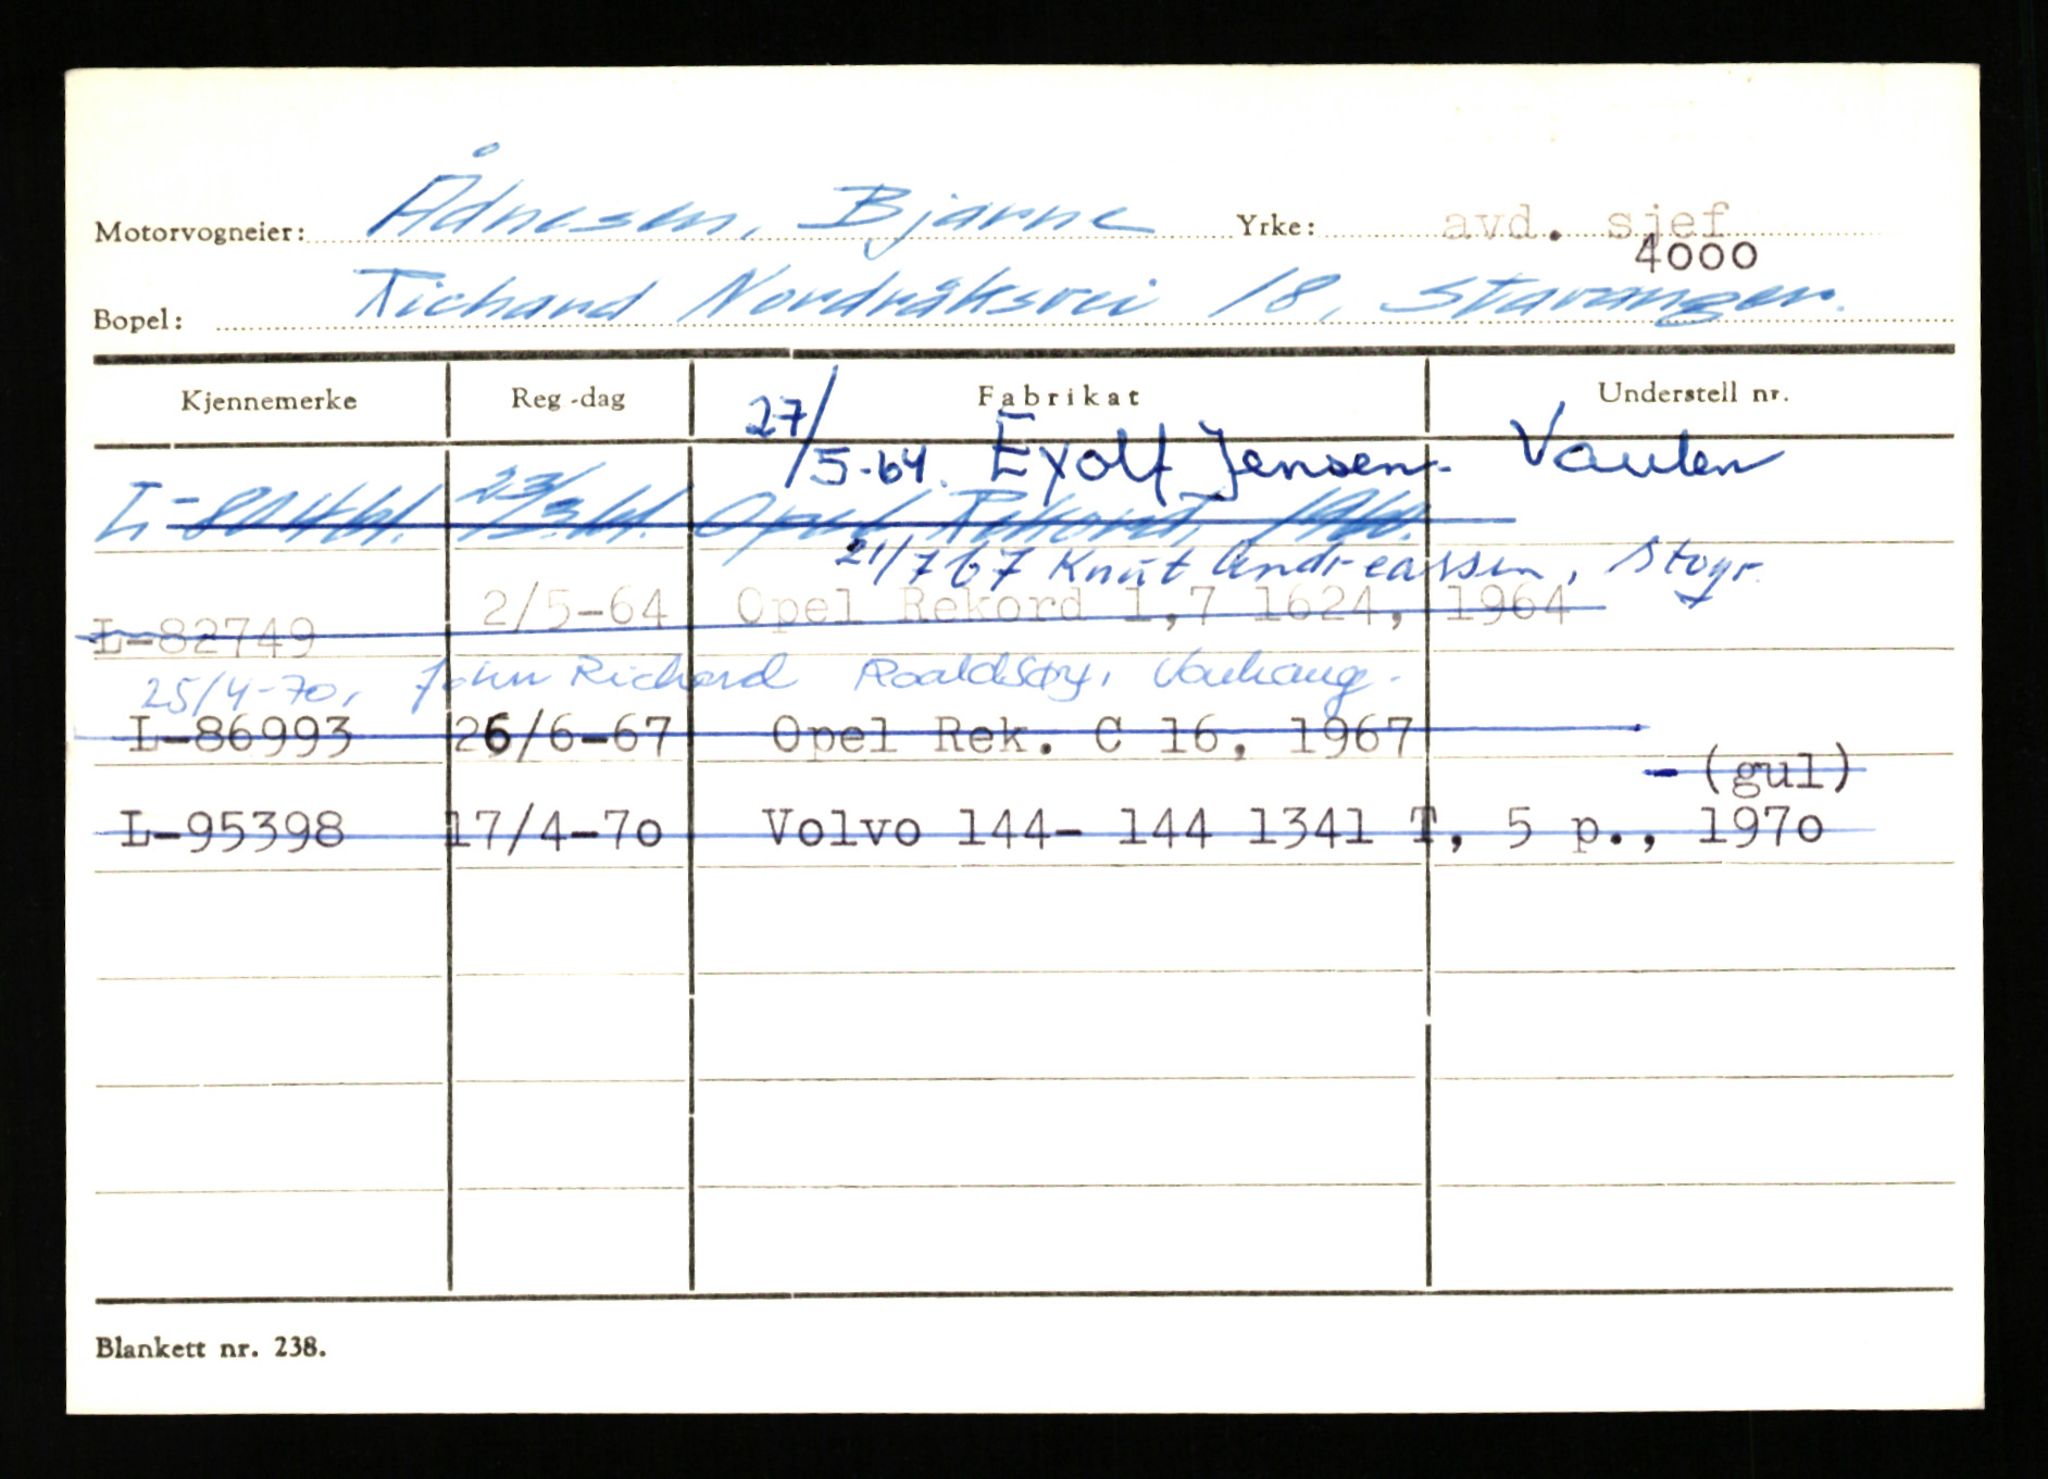 Motorvogneier: Ådnesen, Bjarne Yrke: avd. sjef
4000
Bopel: Richard Nordråksvei 18, Stavanger.
Kjennemerke Reg-dag Fabrikat Understell nr.
27/5-64. Eyolf Jensen - Vaulen
L- 23/3.61. Opel Rekord, 1961.
21/7 67 Knut Andreassen,
L-82749 2/5-64 Opel Rekord 1,7 1624, 1964
25/4-70, John Richard
L-86993 26/6-67 Opel Rek. C 16, 1967
- (gul)
L-95398 17/4-70 Volvo 144- 144 1341 T, 5 p., 1970
Blankett nr. 238.